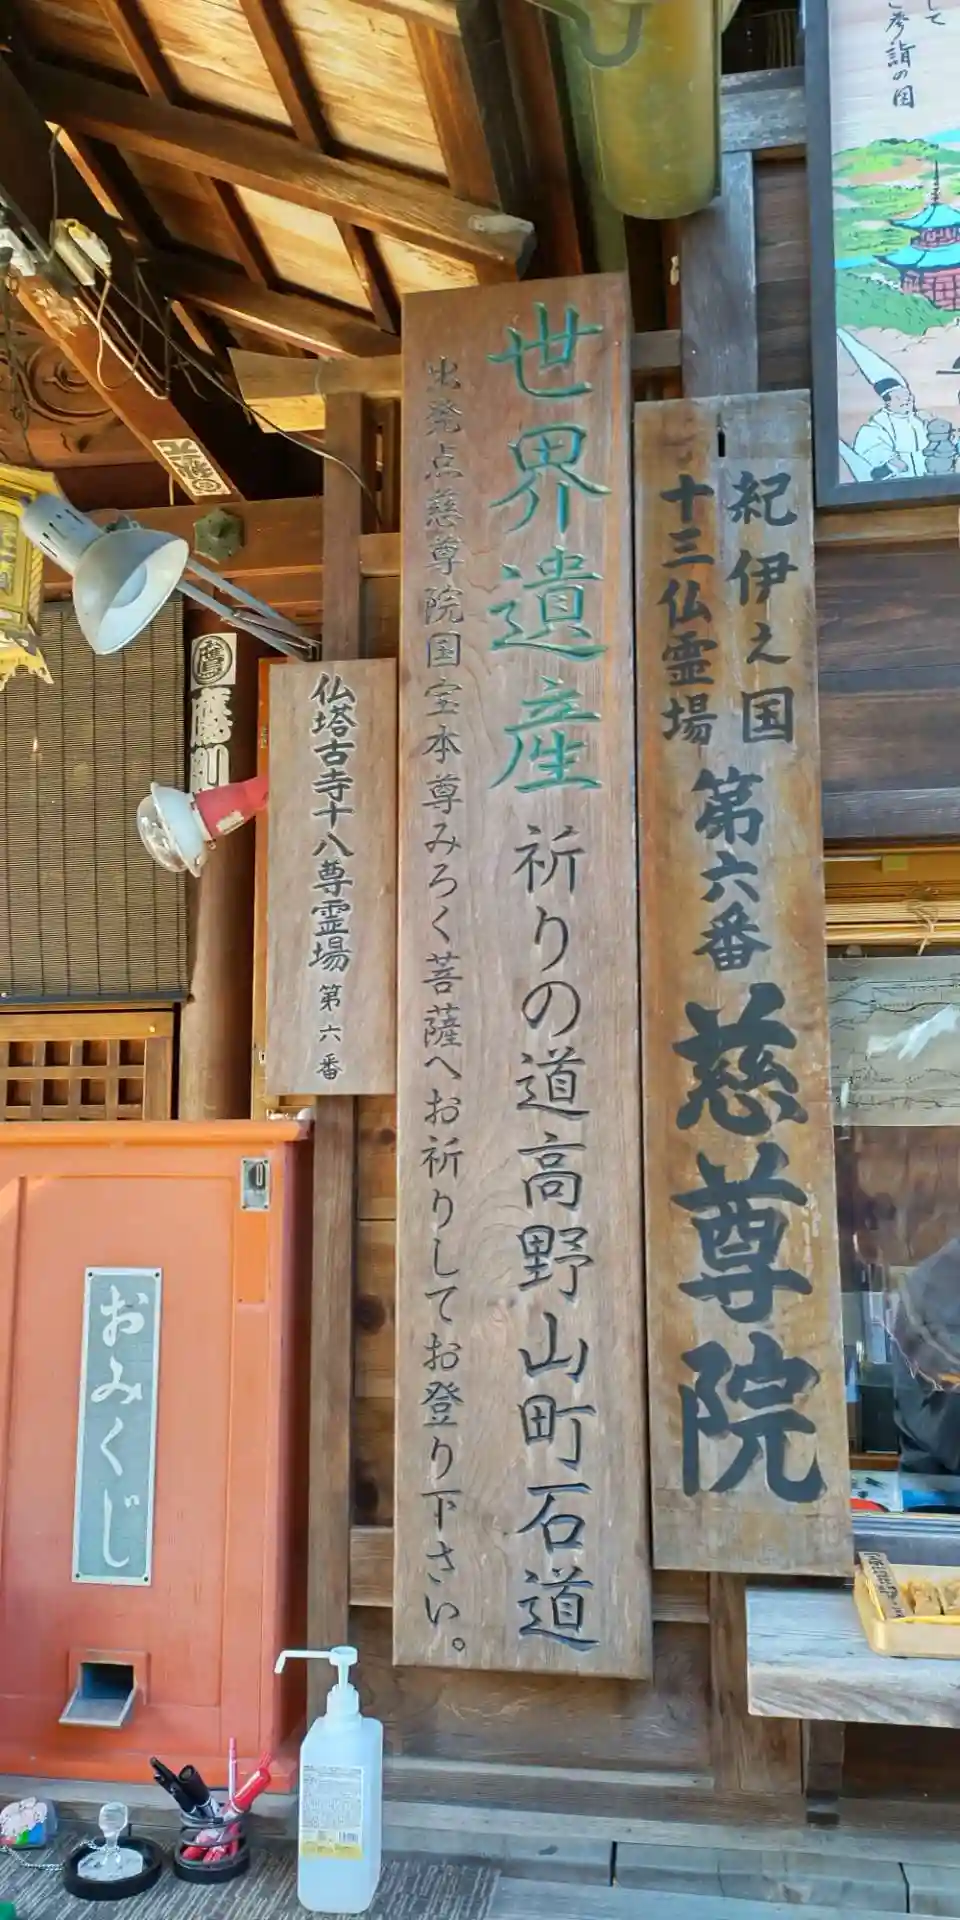 して
ご参詣の図
紀伊之国
十三仏霊場
第六番
慈尊院
世界遺産 祈りの道高野山町石道
出発点慈尊院国宝本尊みろく菩薩へお祈りしてお登り下さい。
仏塔古寺十八尊霊場 第六番
おみくじ